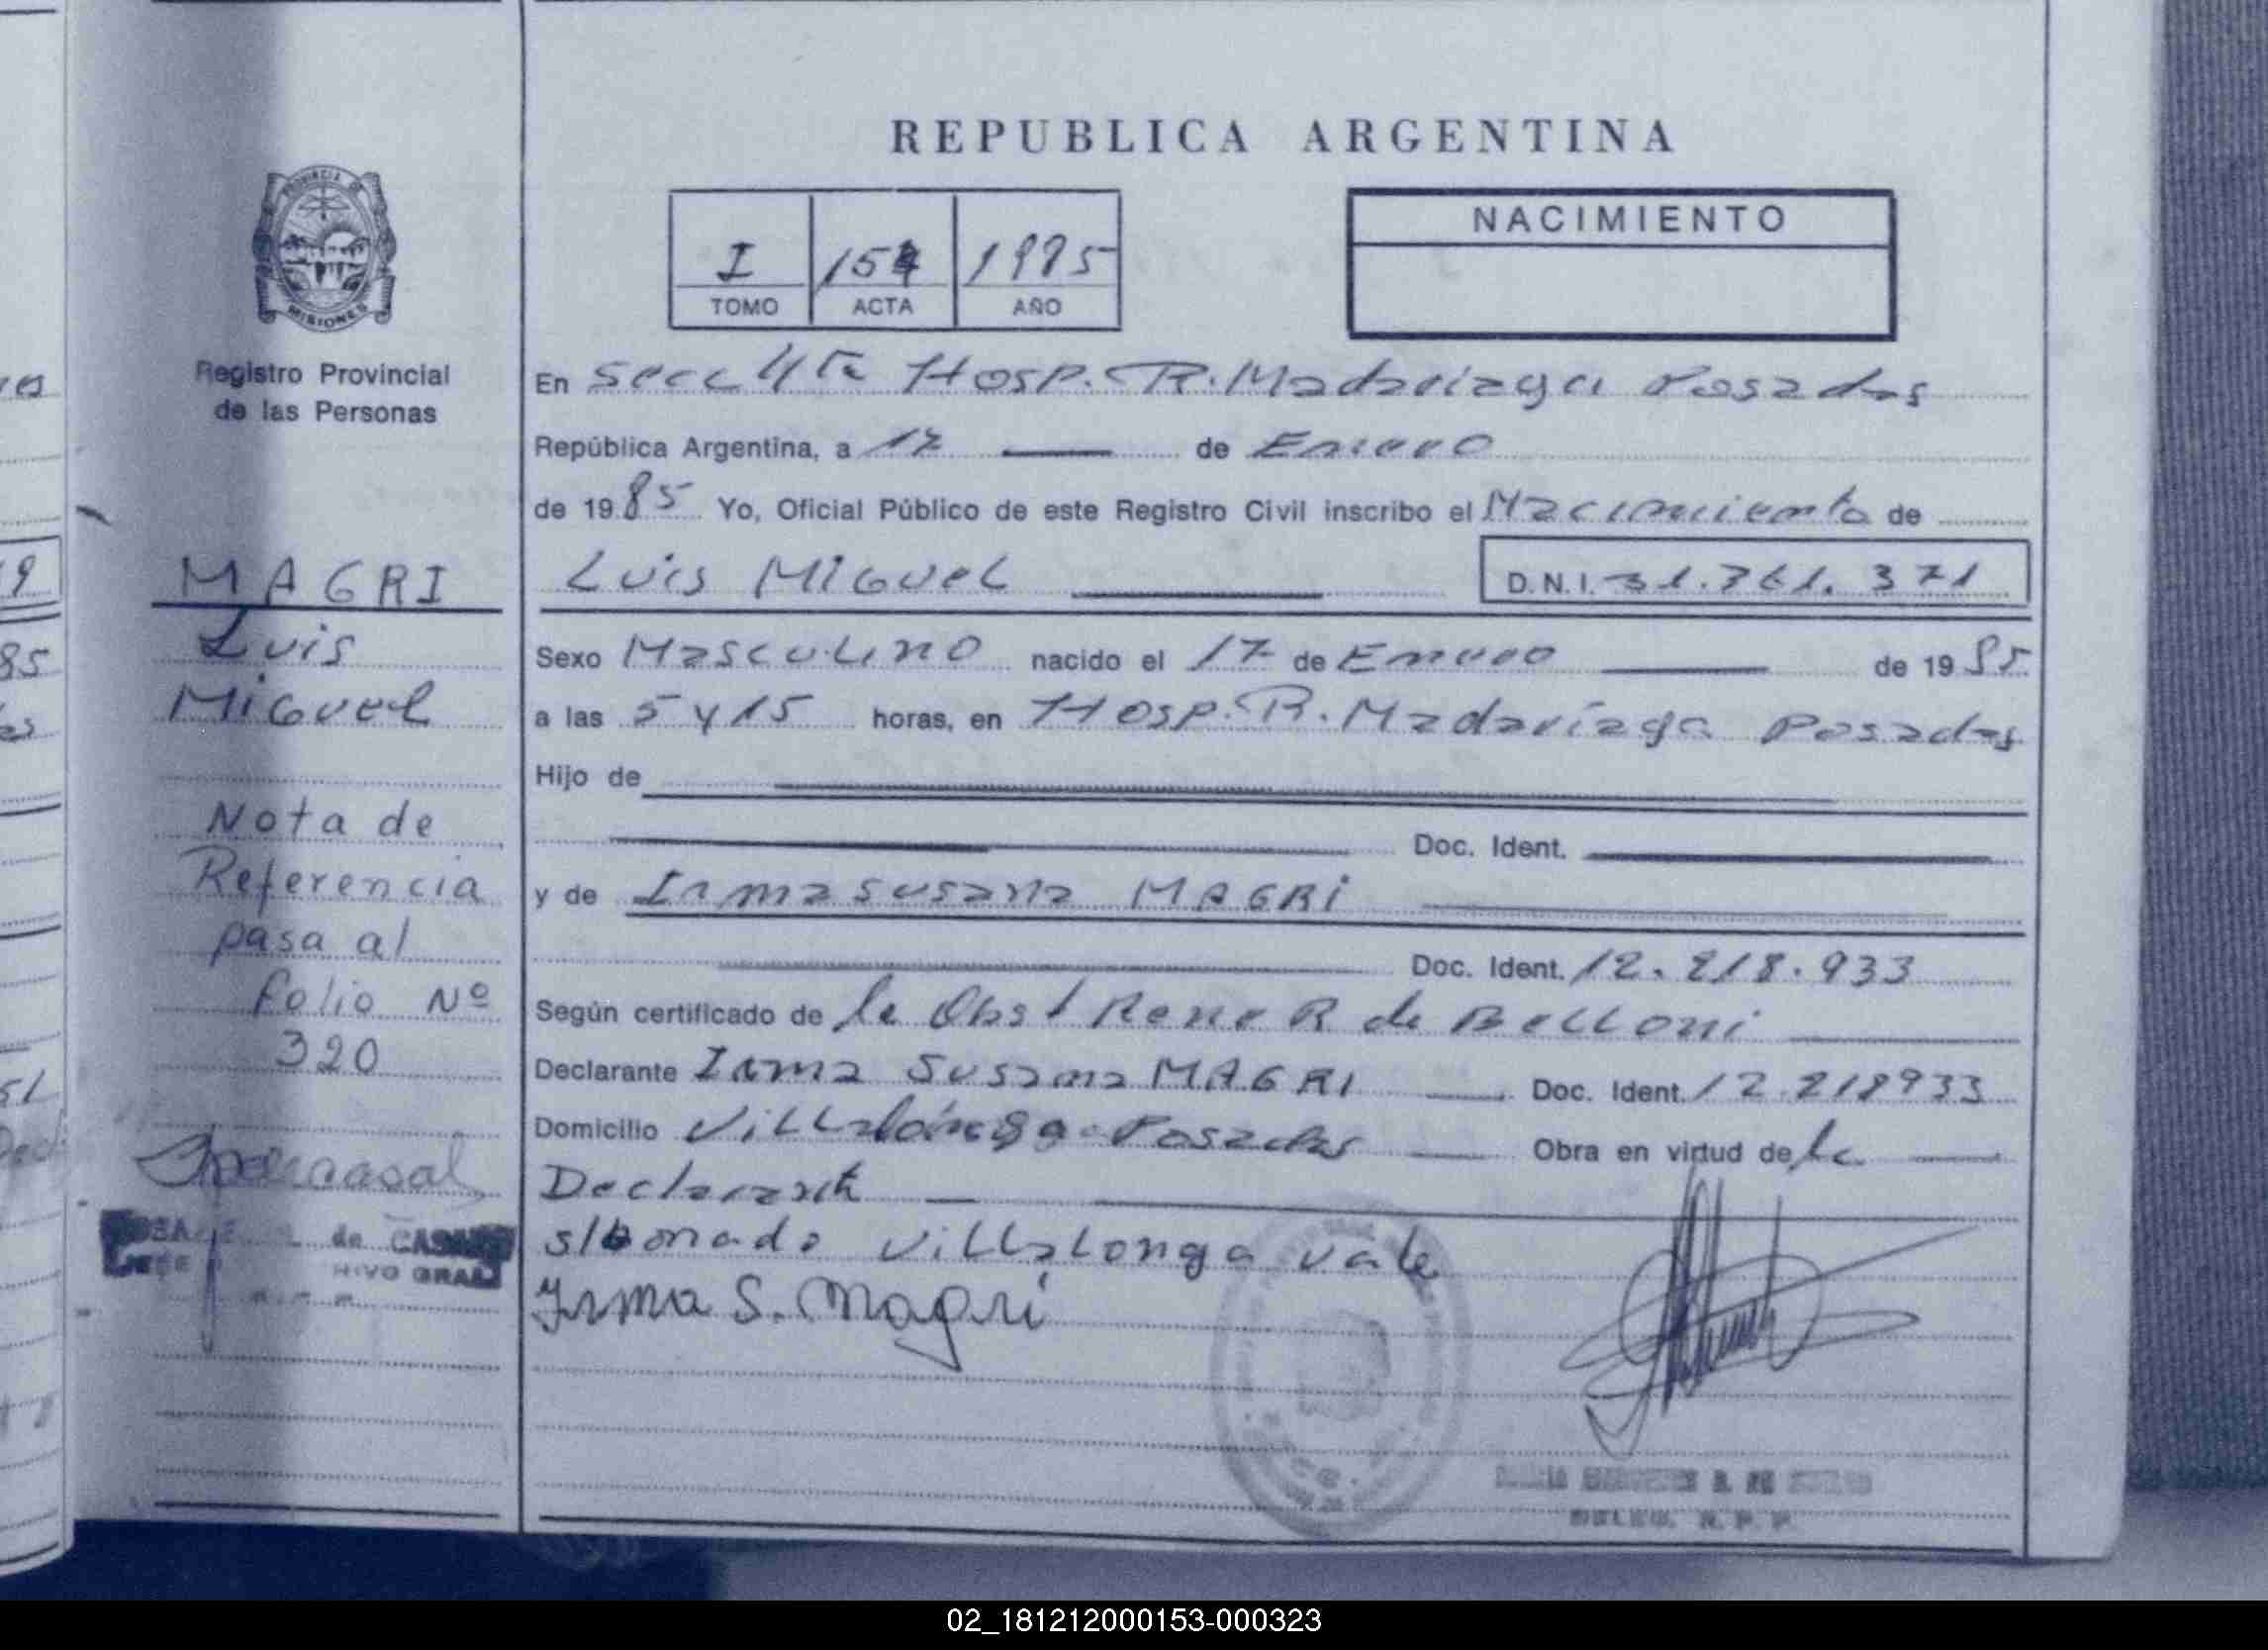 REPUBLICA ARGENTINA
PROVINCIA DE
MISIONES
Registro Provincial
de las Personas
I
TOMO
ACTA
1985
AÑO
NACIMIENTO
En Secc 4ta Hosp. R. Madariaga Posadas
República Argentina, a 17 de Enero
de 1985 Yo, Oficial Público de este Registro Civil inscribo el Nacimiento de
MAGRI
Luis
Miguel
Luis Miguel
D.N.I. 31.361.371
Sexo Masculino nacido el 17 de Enero de 1985
a las 5 y 15 horas, en Hosp. R. Madariaga Posadas
Hijo de
Doc. Ident.
y de Irma Susana MAGRI
Doc. Ident. 12.218.933
Según certificado de la Obst Rene R de Belloni
Declarante Irma Susana MAGRI Doc. Ident. 12.218933
Domicilio Villalonga - Posadas Obra en virtud de la
Declarante
s/bonado Villalonga vale
Irma S. Magri
Nota de
Referencia
pasa al
folio Nº
320
de CASAL
02_181212000153-000323